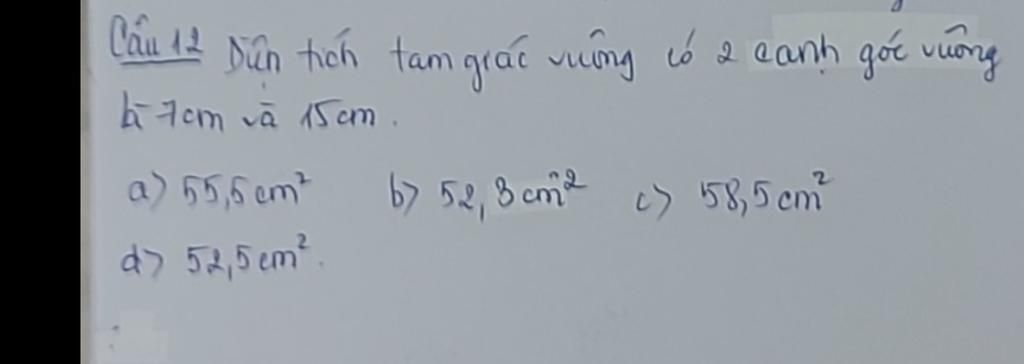 Câu 12 Diện tích tam giác vuông có 2 cạnh góc vuông
là 7cm và 15cm.
a) 55,5cm²  b) 52,3cm²  c) 58,5cm²
d) 52,5cm².